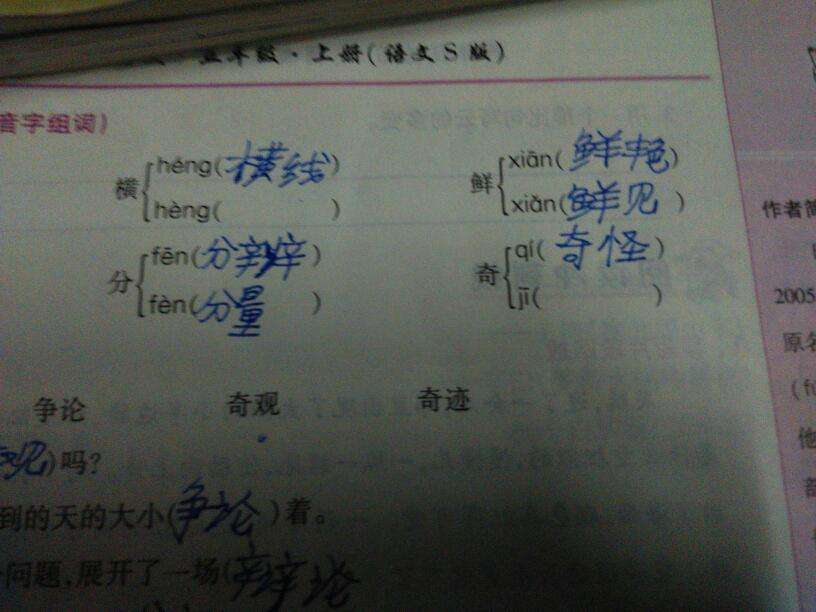 五年级·上册(语文S版)
音字组词)
横 héng(横线) 鲜 xiān(鲜艳)
hèng( ) xiǎn(鲜见)
分 fēn(分辨) 奇 qí(奇怪)
fèn(分量) jī( )
争论 奇观 奇迹
观)吗?
到的天的大小(争论)着。
问题,展开了一场(辩论
作者简
2005
原名
(fú
他
部